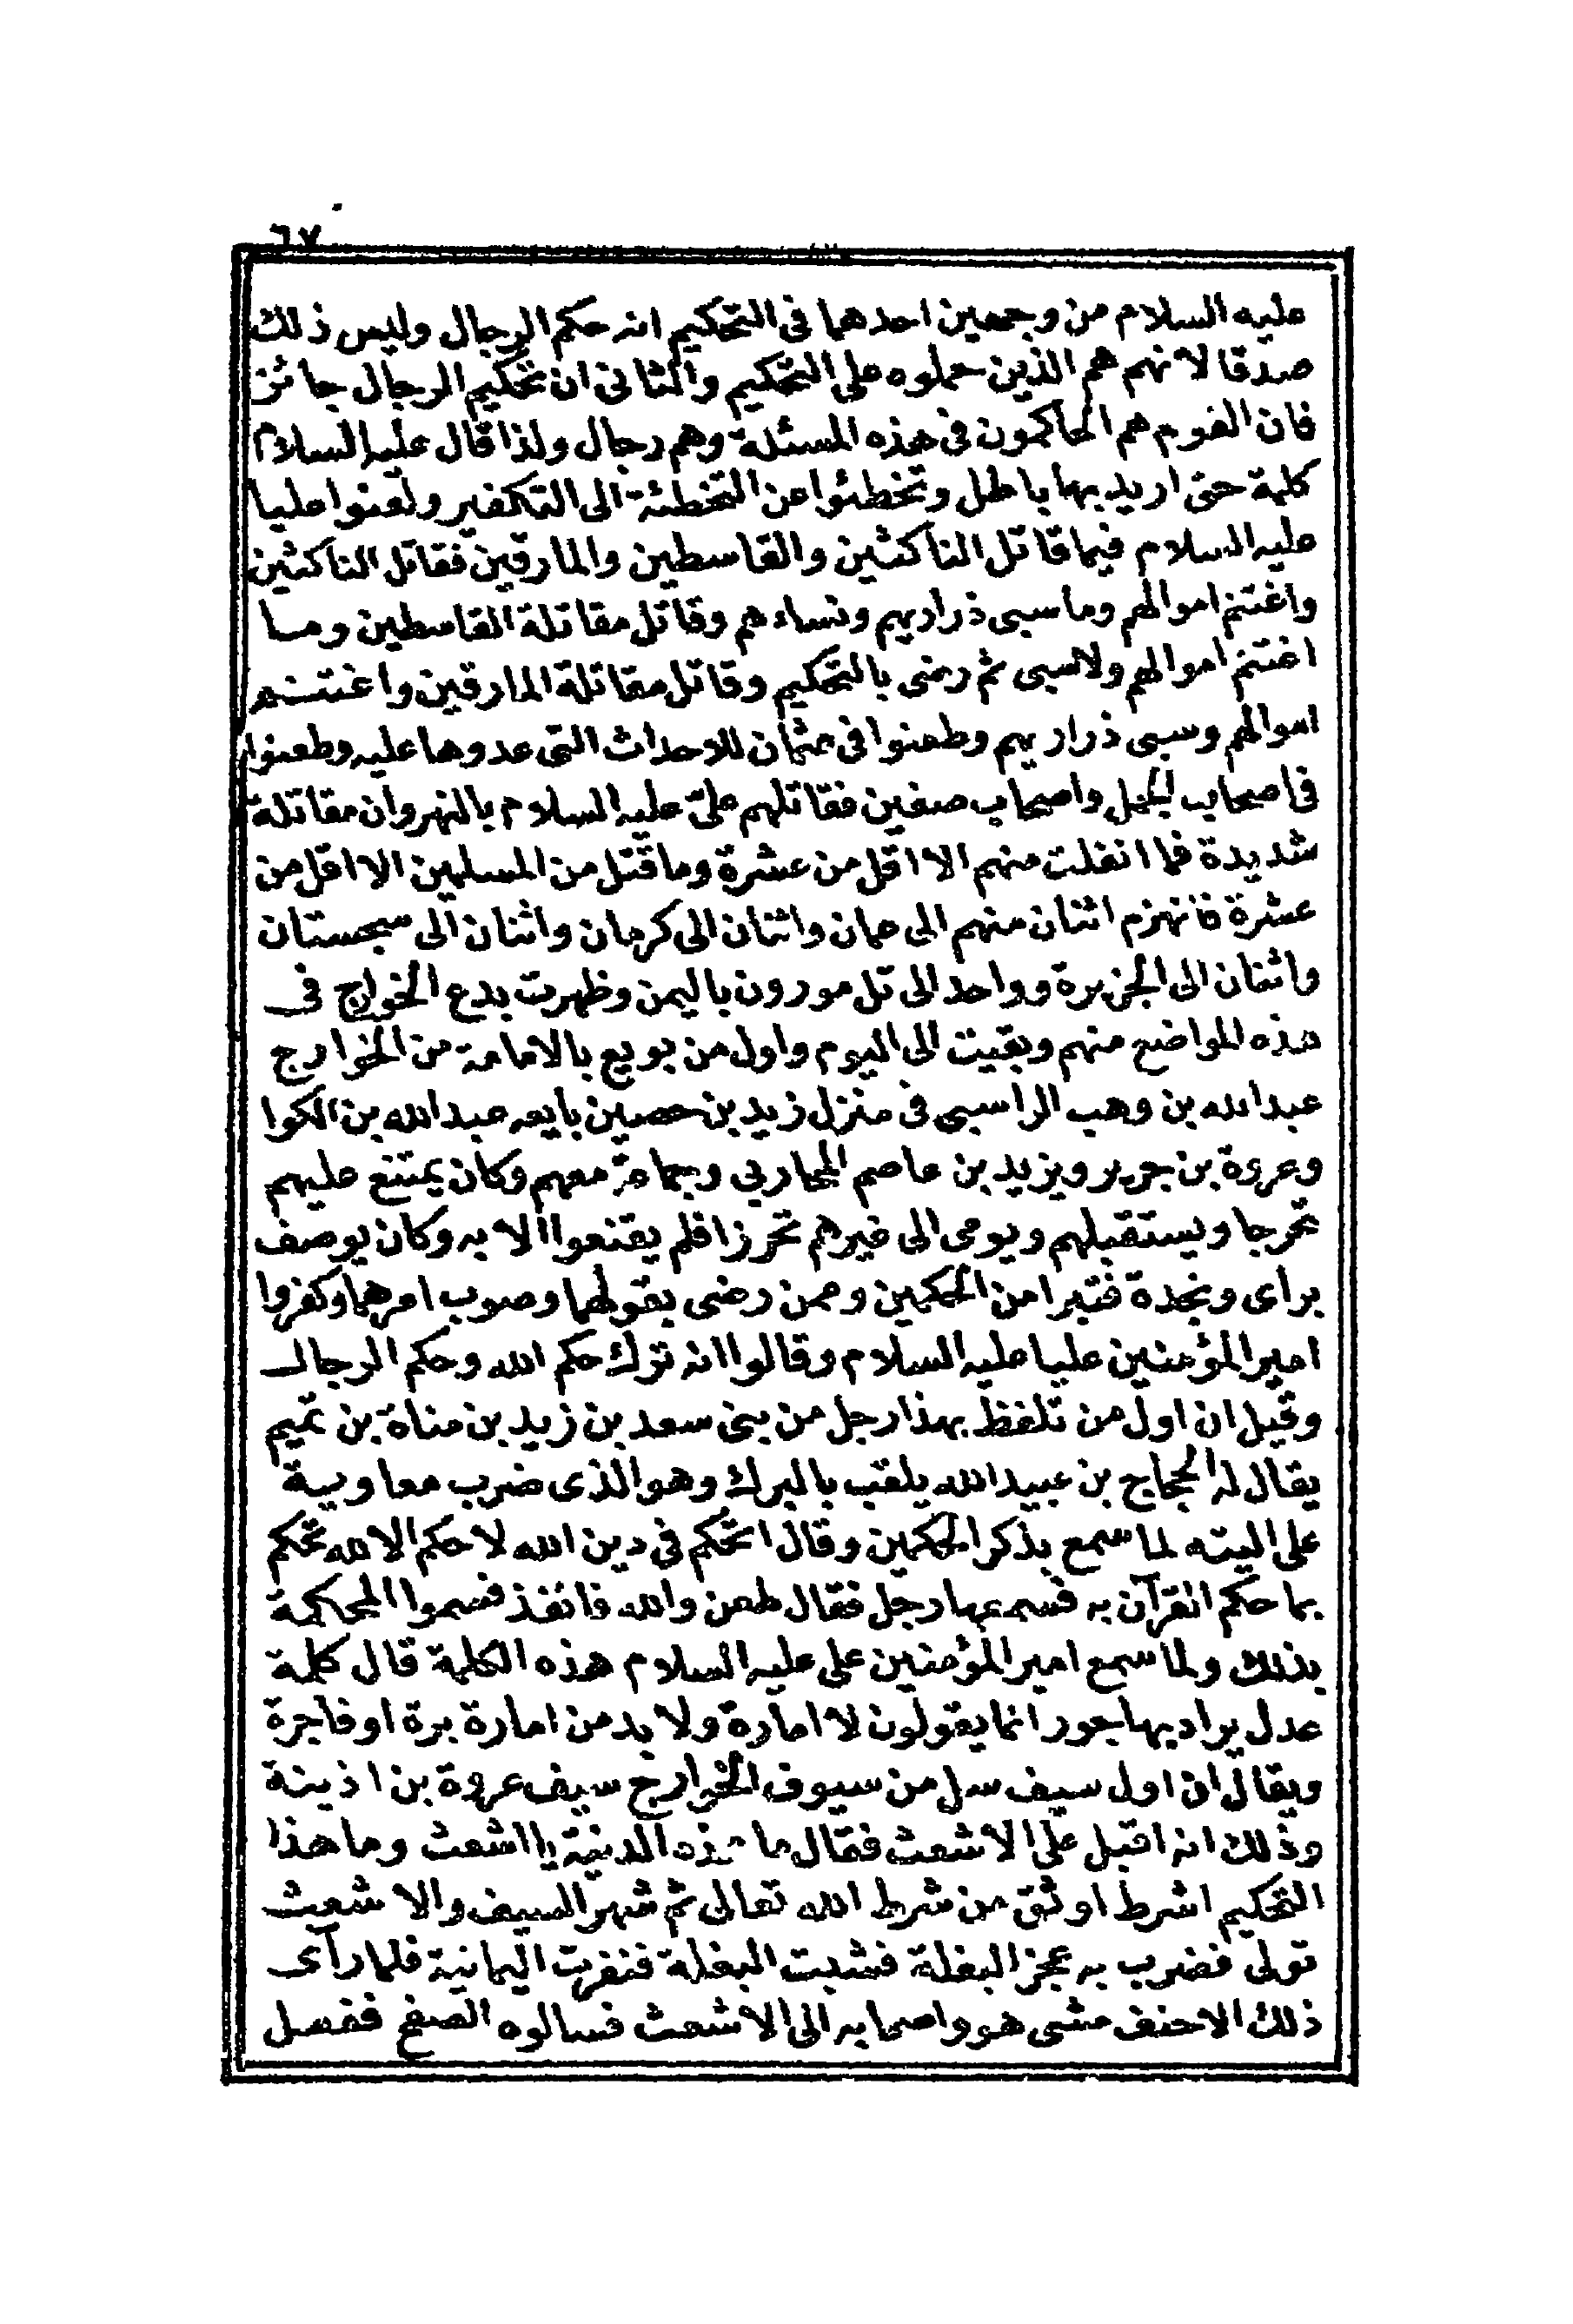 ٦٧
عليه السلام من وجهين احدهما فى التحكيم انه حكم الرجال وليس ذلك
صدقا لانهم هم الذين حملوه على التحكيم والثانى ان تحكيم الرجال جائز
فان القوم هم الحاكمون فى هذه المسئلة وهم رجال ولذا قال عليه السلام
كلمة حق اريد بها باطل وتخطئوا عن التخطئة الى التكفير ولعنوا عليا
عليه السلام فيما قاتل الناكثين والقاسطين والمارقين فقاتل الناكثين
واغتنم اموالهم وما سبى ذراريهم ونساءهم وقاتل مقاتلة القاسطين وما
اغتنم اموالهم ولا سبى ثم رضى بالتحكيم وقاتل مقاتلة المارقين واغتنم
اموالهم وسبى ذراريهم وطعنوا فى عثمان للاحداث التى عدوها عليه وطعنوا
فى اصحاب الجمل واصحاب صفين فقاتلهم علىّ عليه السلام بالنهروان مقاتلة
شديدة فما انفلت منهم الا اقل من عشرة وما قتل من المسلمين الا اقل من
عشرة فانهزم اثنان منهم الى عمان واثنان الى كرمان واثنان الى سجستان
واثنان الى الجزيرة وواحد الى تل مورون باليمن وظهرت بدع الخوارج فى
هذه المواضع منهم وبقيت الى اليوم واول من بويع بالامامة من الخوارج
عبدالله بن وهب الراسبى فى منزل زيد بن حصين بايعه عبدالله بن الكوا
وعروة بن جرير ويزيد بن عاصم المحاربى وجماعة معهم وكان يمتنع عليهم
تحرجا ويستقبلهم ويومى الى غيرهم تحرزا فلم يقنعوا الا به وكان يوصف
براى ونجدة فتبرا من الحكمين وممن رضى بقولهما وصوب امرهما وكفروا
امير المؤمنين عليا عليه السلام وقالوا انه ترك حكم الله وحكم الرجال
وقيل ان اول من تلفظ بهذا رجل من بنى سعد بن زيد بن مناة بن تميم
يقال له الحجاج بن عبيدالله يلقب بالبرك وهو الذى ضرب معاوية
على اليته لما سمع بذكر الحكمين وقال اتحكم فى دين الله لا حكم الا لله تحكم
بما حكم القرآن به فسمعها رجل فقال طعن والله فانفذ فسموا المحكمة
بذلك ولما سمع امير المؤمنين على عليه السلام هذه الكلمة قال كلمة
عدل يراد بها جور انما يقولون لا امارة ولا بد من امارة برة او فاجرة
ويقال ان اول سيف سل من سيوف الخوارج سيف عروة بن اذينة
وذلك انه اقبل على الاشعث فقال ما هذه الدنية يا اشعث وما هذا
التحكيم اشرط اوثق من شرط الله تعالى ثم شهر السيف والاشعث
تولى فضرب به عجز البغلة فشبت البغلة فنفرت اليمانية فلما رآى
ذلك الاحنف مشى هو واصحابه الى الاشعث فسالوه الصفح ففعل